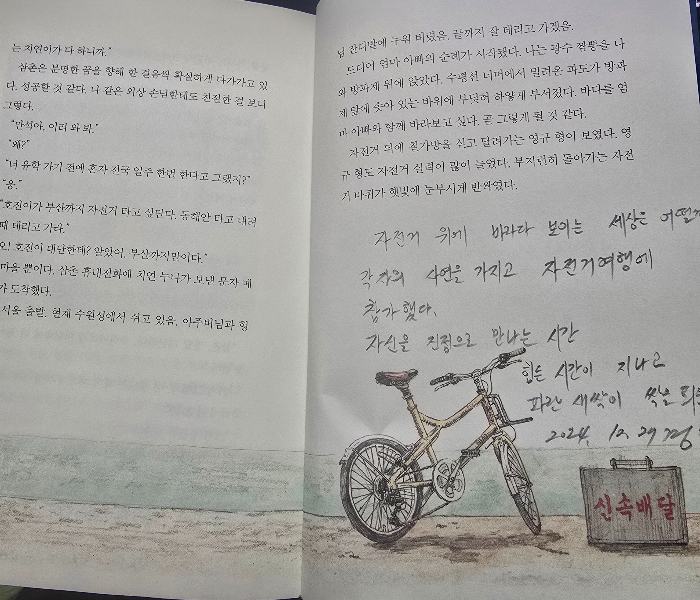 는 자전이가 다 하니까."
삼촌은 분명한 꿈을 향해 한 걸음씩 확실하게 다가가고 있
다. 성공할 것 같다. 나 같은 외상 손님한테도 친절한 걸 보니
그렇다.
"만석아, 이리 와 봐."
"왜?"
"너 유학 가기 전에 혼자 전국 일주 한번 한다고 그랬지?"
"응."
"호진이가 부산까지 자전거 타고 싶단다. 동해안 타고 내려
때 데리고 가라."
오! 호진이 대단한데? 알았어. 부산까지만이다."
마음 뿐이다. 삼촌 휴대전화에 치면 누나가 보낸 문자 메
가 도착했다.
서울 출발. 현재 수원성에서 쉬고 있음. 아주머님과 형
님 잔디밭에 누워 버텼음. 끝까지 잘 데리고 가겠음.
드디어 엄마 아빠의 순례가 시작됐다. 나는 광수 짬뽕을 나
와 방파제 위에 앉았다. 수평선 너머에서 밀려온 파도가 방파
제 앞에 솟아 있는 바위에 부딪혀 하얗게 부서졌다. 바다를 엄
마 아빠와 함께 바라보고 싶다. 곧 그렇게 될 것 같다.
자전거 뒤에 철가방을 싣고 달려가는 영규 형이 보였다. 영
규 형도 자전거 실력이 많이 늘었다. 부지런히 돌아가는 자전
거 바퀴가 햇빛에 눈부시게 반짝였다.
자전거 위에 바라다 보이는 세상은
각자의 사연을 가지고 자전거여행에
참가했다.
자신을 진정으로 만나는 시간
힘든 시간이 지나고
파란 새싹이 싹을
2024. 12. 29
신속배달